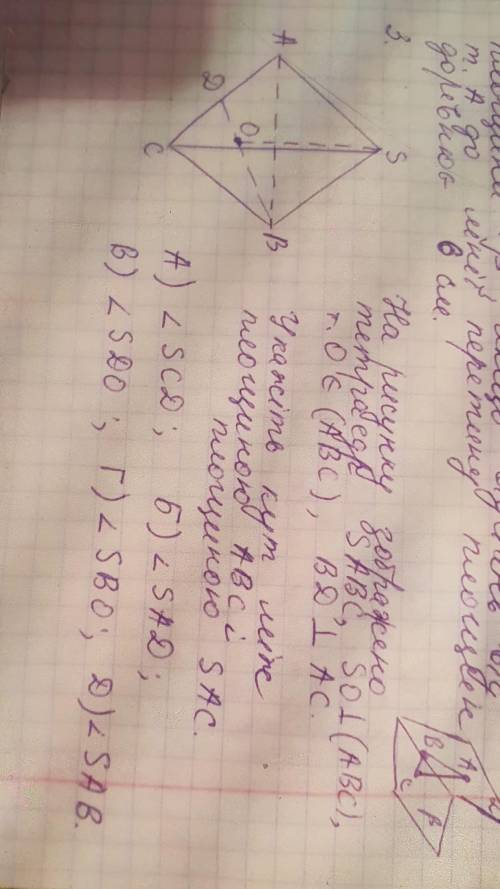 т. А до лінії перетину площин
дорівнює 6 см.
3.
На рисунку зображено
тетраедр SABC, SO⊥(ABC),
т. O∈(ABC), BD⊥AC.
Укажіть кут між
площиною ABC і
площиною SAC.
А) ∠SCD; Б) ∠SAD;
В) ∠SDO; Г) ∠SBO; Д) ∠SAB.
A
S
D
O
C
B
A
B
C
β